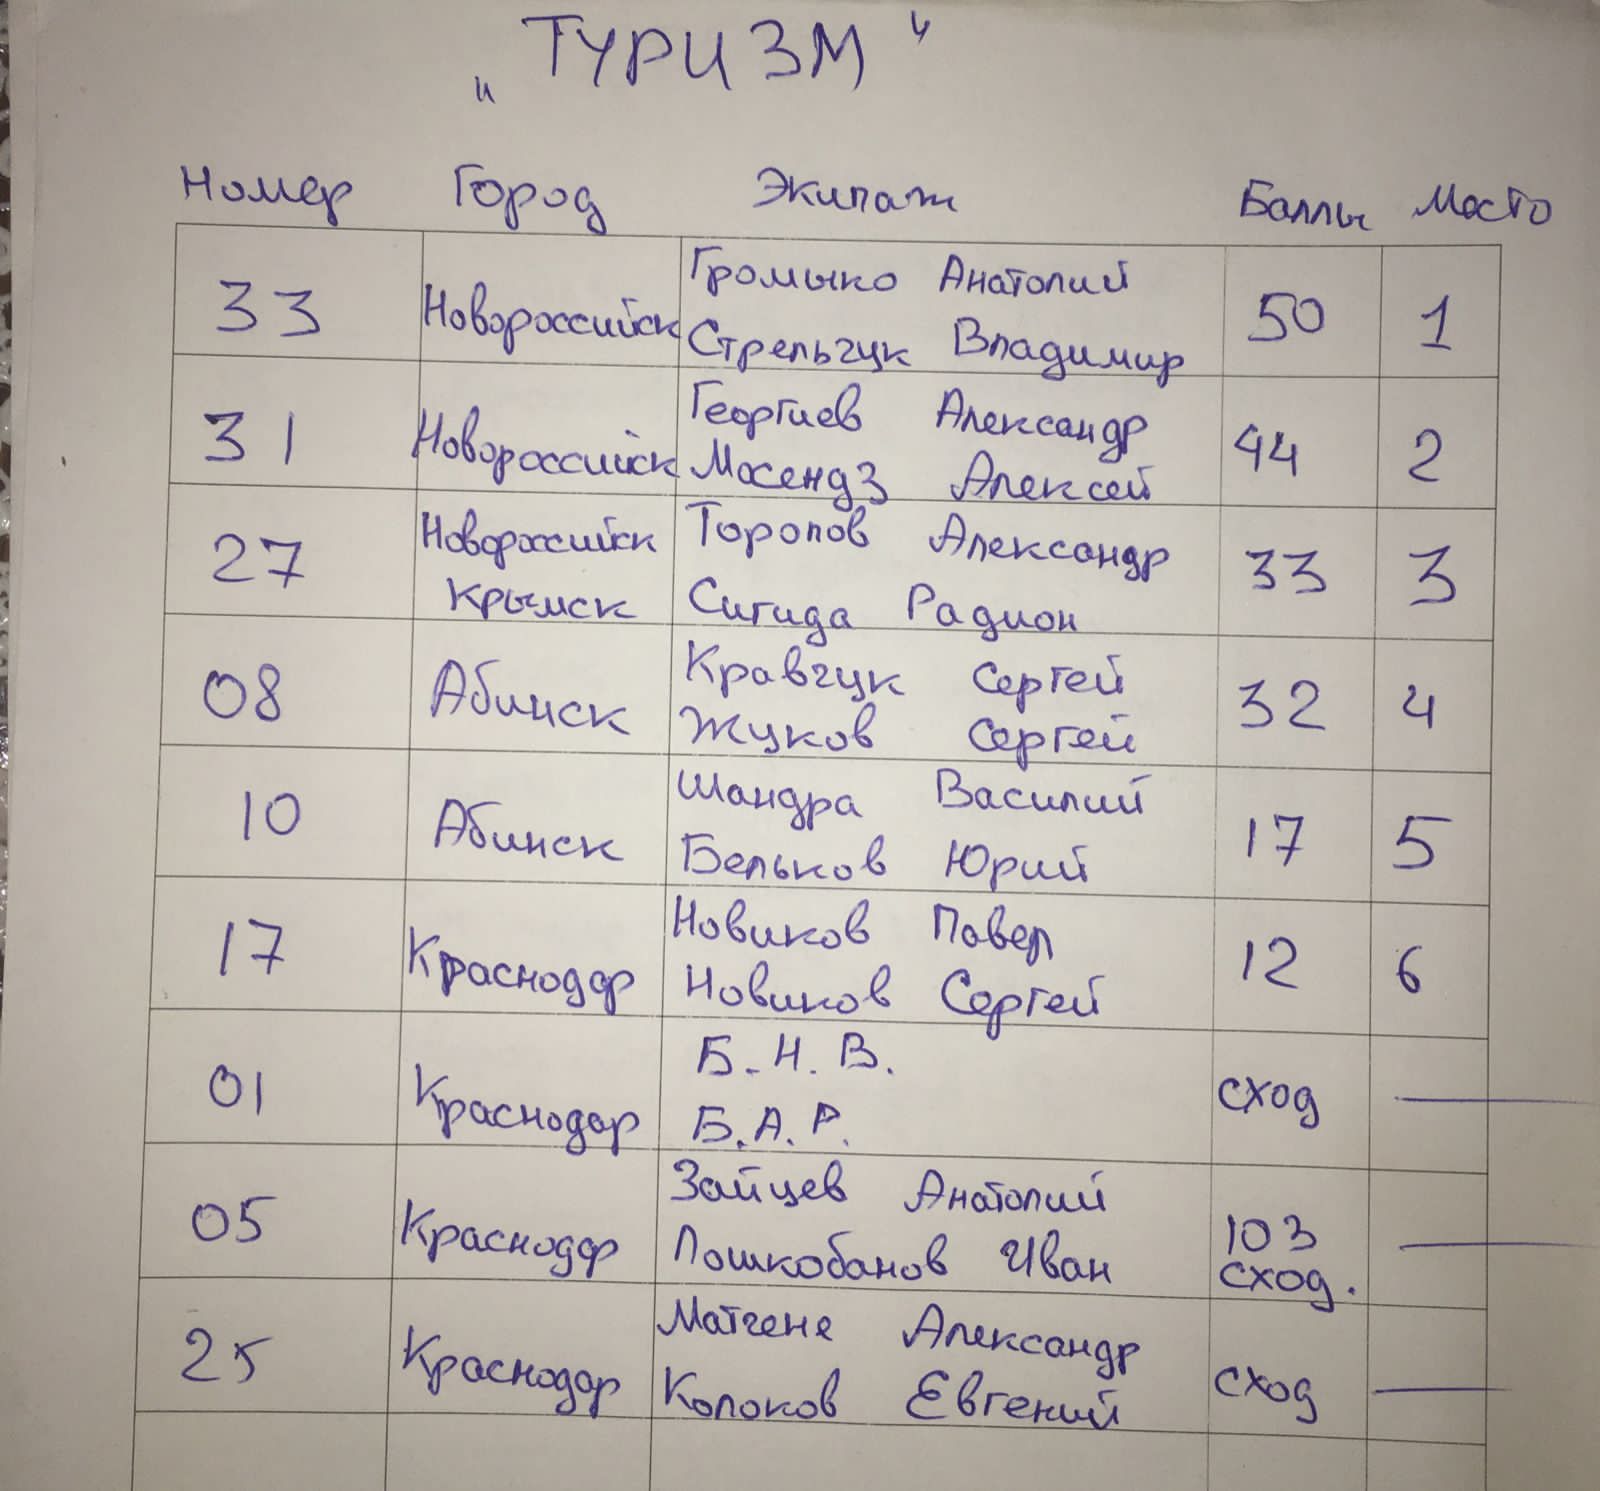 „ТУРИЗМ“
Номер Город Экипаж Баллы Место
33 Новороссийск Громыко Анатолий 50 1
Стрельчук Владимир
31 Новороссийск Георгиев Александр 44 2
Мосендз Алексей
27 Новороссийск Торопов Александр 33 3
Крымск Сигида Радион
08 Абинск Кравчук Сергей 32 4
Жуков Сергей
10 Абинск Шандра Василий 17 5
Бельков Юрий
17 Краснодар Новиков Павел 12 6
Новиков Сергей
01 Краснодар Б.Н.В. сход —
Б.А.Р.
05 Краснодар Зайцев Анатолий 103 —
Лошкобанов Иван сход.
25 Краснодар Матгене Александр сход —
Колоков Евгений